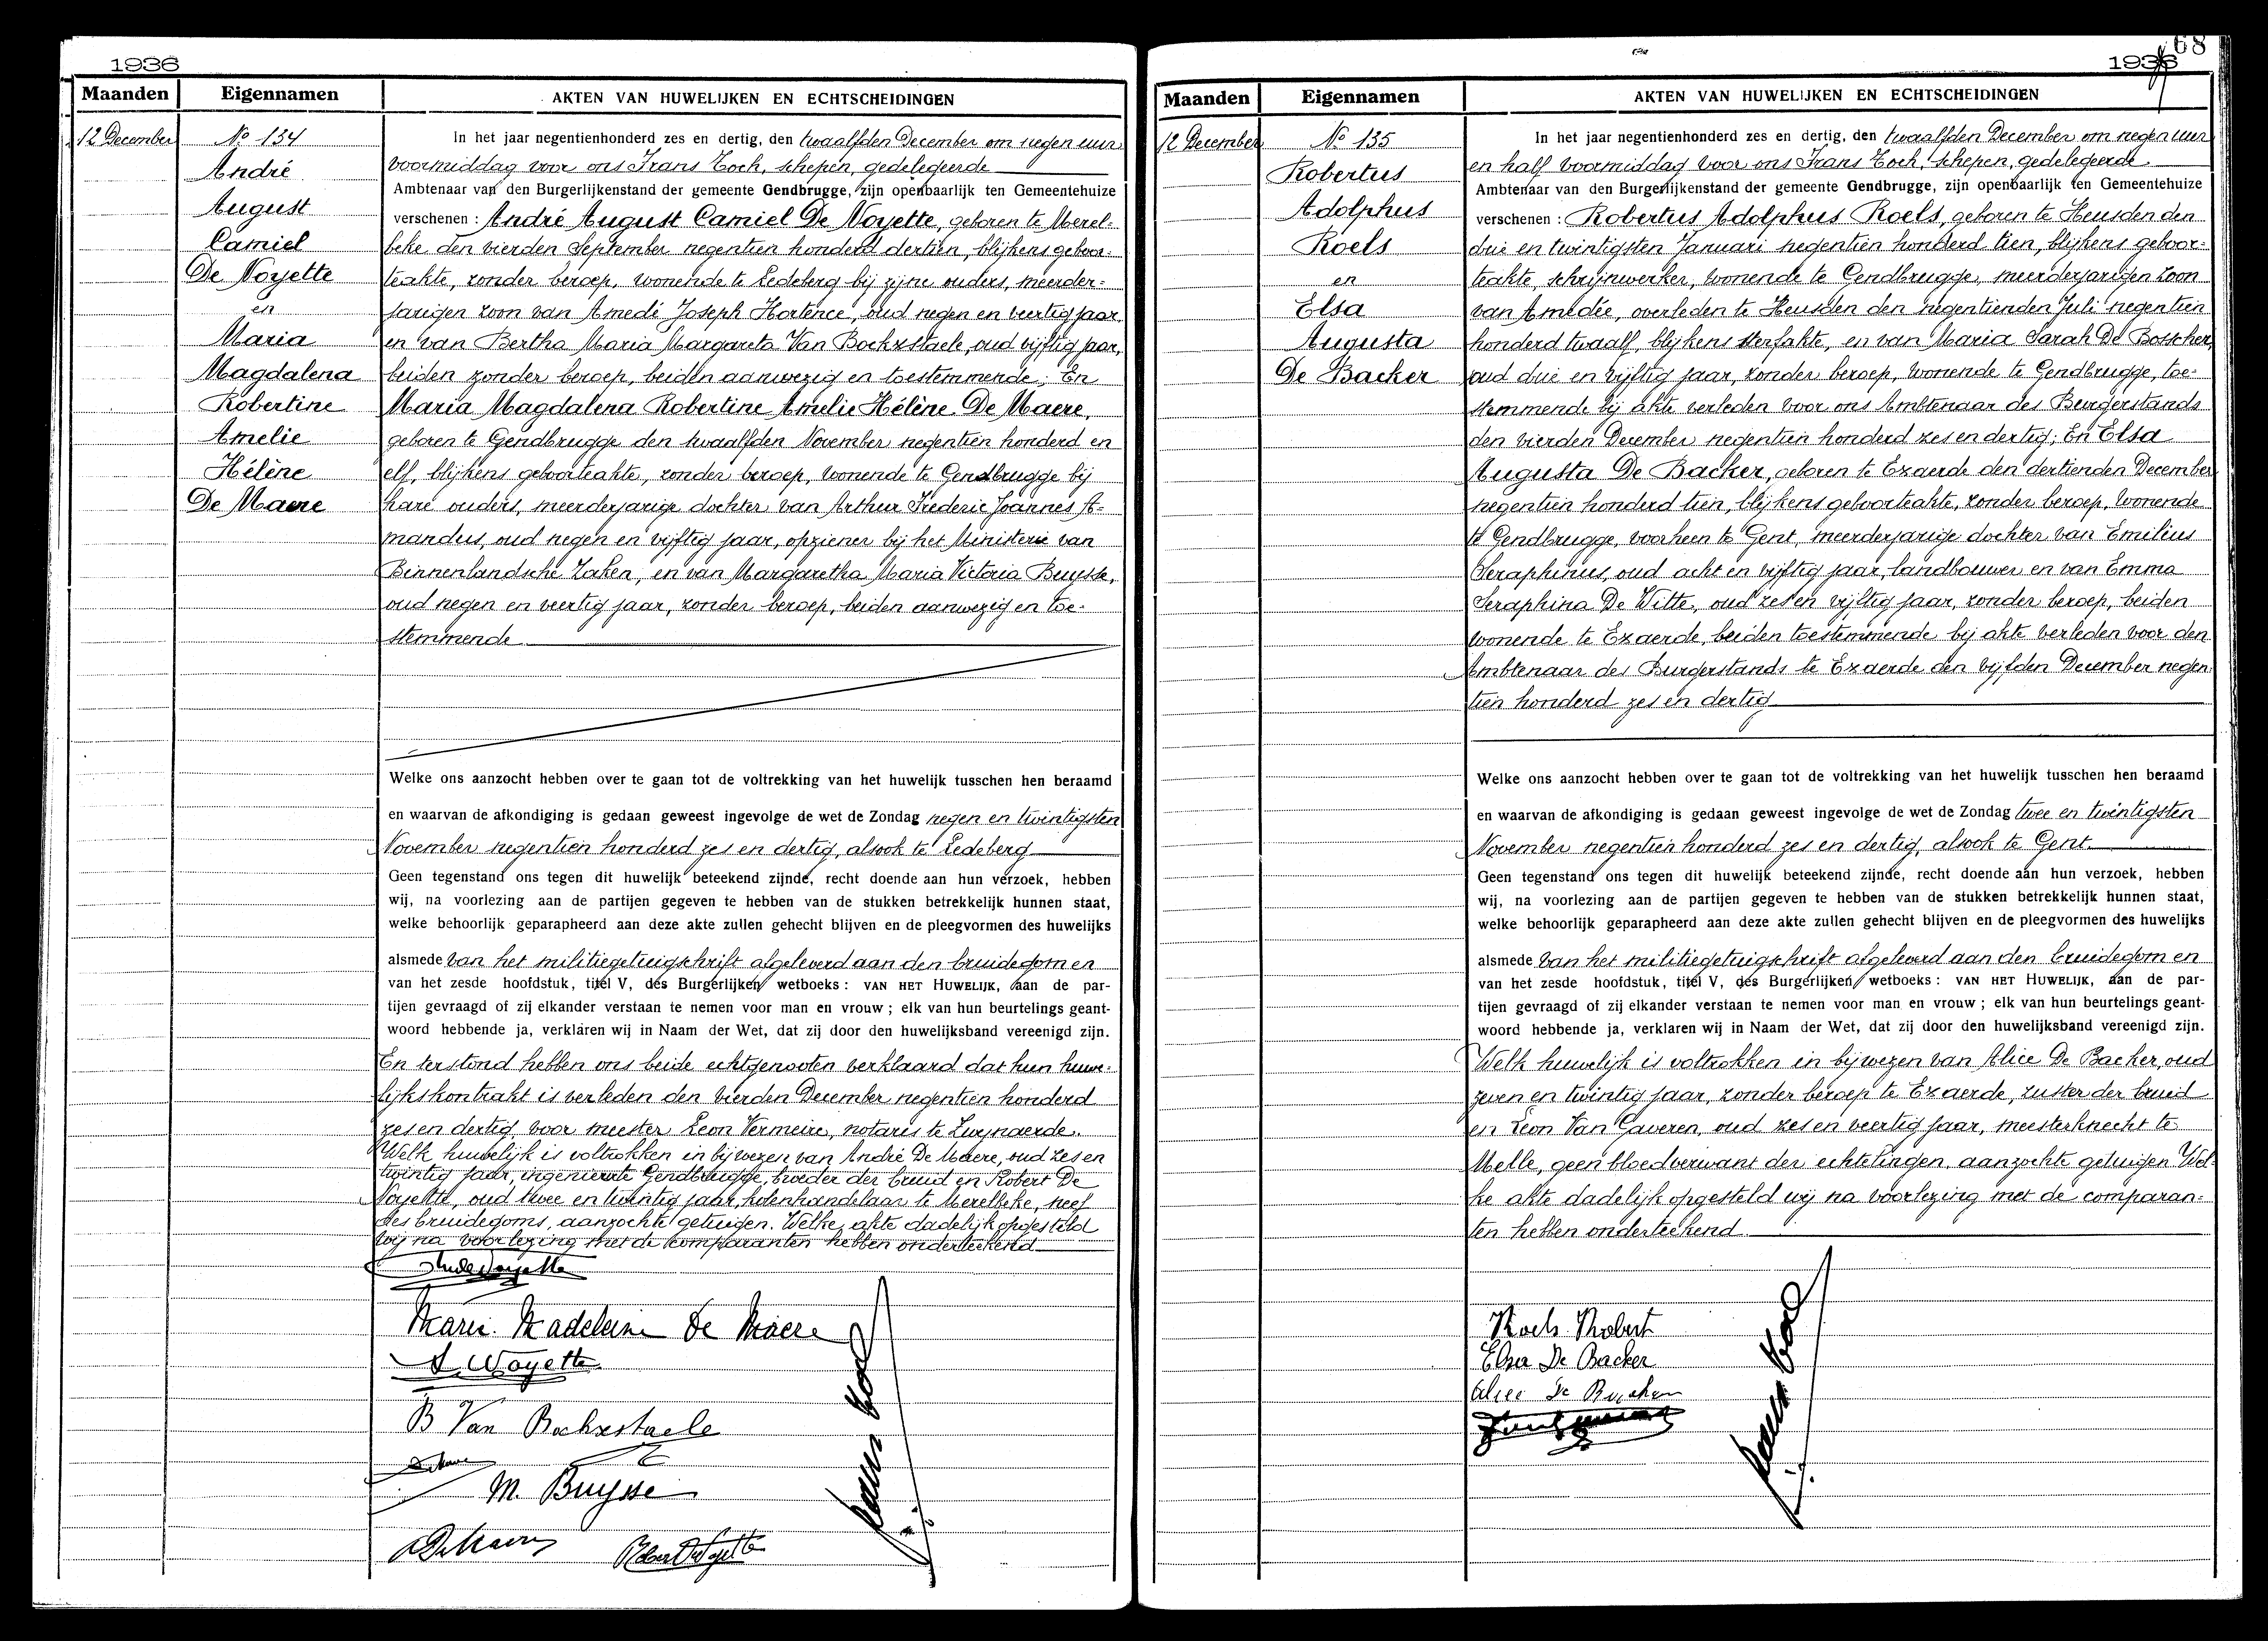 1936
Maanden Eigennamen AKTEN VAN HUWELIJKEN EN ECHTSCHEIDINGEN
12 December
No 134
André
August
Camiel
De Noyette
en
Maria
Magdalena
Robertine
Amelie
Hélène
De Maere
In het jaar negentienhonderd zes en dertig, den twaalfden December om negen uur
voormiddag voor ons Frans Koch, schepen, gedelegeerde
Ambtenaar van den Burgerlijkenstand der gemeente Gendbrugge, zijn openbaarlijk ten Gemeentehuize
verschenen : André August Camiel De Noyette, geboren te Merel-
beke den vierden September negentien honderd dertien, blijkens geboor-
teakte, zonder beroep, wonende te Ledeberg bij zijne ouders, meerder-
jarigen zoon van Amedé Joseph Hortence, oud negen en veertig jaar
en van Bertha Maria Margareta Van Bockxstaele, oud vijftig jaar,
beiden zonder beroep, beiden aanwezig en toestemmende; En
Maria Magdalena Robertine Amelie Hélène De Maere,
geboren te Gendbrugge den twaalfden November negentien honderd en
elf, blijkens geboorteakte, zonder beroep, wonende te Gendbrugge bij
hare ouders, meerderjarige dochter van Arthur Frederic Joannes A-
mandus, oud negen en vijftig jaar, opziener bij het Ministerie van
Binnenlandsche Zaken, en van Margaretha Maria Victoria Buysse,
oud negen en veertig jaar, zonder beroep, beiden aanwezig en toe-
stemmende
Welke ons aanzocht hebben over te gaan tot de voltrekking van het huwelijk tusschen hen beraamd
en waarvan de afkondiging is gedaan geweest ingevolge de wet de Zondag negen en twintigsten
November negentien honderd zes en dertig, alsook te Ledeberg
Geen tegenstand ons tegen dit huwelijk beteekend zijnde, recht doende aan hun verzoek, hebben
wij, na voorlezing aan de partijen gegeven te hebben van de stukken betrekkelijk hunnen staat,
welke behoorlijk geparapheerd aan deze akte zullen gehecht blijven en de pleegvormen des huwelijks
alsmede van het militiegetuigschrift afgeleverd aan den bruidegom en
van het zesde hoofdstuk, titel V, des Burgerlijken wetboeks : VAN HET HUWELIJK, aan de par-
tijen gevraagd of zij elkander verstaan te nemen voor man en vrouw ; elk van hun beurtelings geant-
woord hebbende ja, verklaren wij in Naam der Wet, dat zij door den huwelijksband vereenigd zijn.
En terstond hebben ons beide echtgenooten verklaard dat hun huwe-
lijkskontrakt is verleden den vierden December negentien honderd
zes en dertig voor meester Leon Vermeire, notaris te Zwynaerde.
Welk huwelijk is voltrokken in bijwezen van André De Maere, oud zes en
twintig jaar, ingenieur te Gendbrugge, broeder der bruid en Robert De
Noyette, oud twee en twintig jaar, kolenhandelaar te Merelbeke, neef
des bruidegoms, aanzochte getuigen. Welke akte dadelijk opgesteld
wij na voorlezing met de komparanten hebben onderteekend
Marie Madeleine De Maere
A. Noyette
B Van Bockxstaele
M. Buysse
Robert De Noyette
68
1936
Maanden Eigennamen AKTEN VAN HUWELIJKEN EN ECHTSCHEIDINGEN
12 December
No 135
Robertus
Adolphus
Roels
en
Elsa
Augusta
De Backer
In het jaar negentienhonderd zes en dertig, den twaalfden December om negen uur
en half voormiddag voor ons Frans Koch, schepen, gedelegeerde
Ambtenaar van den Burgerlijkenstand der gemeente Gendbrugge, zijn openbaarlijk ten Gemeentehuize
verschenen : Robertus Adolphus Roels, geboren te Heusden den
drie en twintigsten Januari negentien honderd tien, blijkens geboor-
teakte, schrijnwerker, wonende te Gendbrugge, meerderjarigen zoon
van Amedée, overleden te Heusden den negentienden Juli negentien
honderd twaalf, blijkens sterfakte, en van Maria Sarah De Bosscher,
oud drie en vijftig jaar, zonder beroep, wonende te Gendbrugge, toe-
stemmende bij akte verleden voor ons Ambtenaar des Burgerstands
den vierden December negentien honderd zes en dertig; En Elsa
Augusta De Backer, geboren te Exaerde den dertienden December
negentien honderd tien, blijkens geboorteakte, zonder beroep, wonende
te Gendbrugge, voorheen te Gent, meerderjarige dochter van Emilius
Seraphinus, oud acht en vijftig jaar, landbouwer en van Emma
Seraphina De Witte, oud zes en vijftig jaar, zonder beroep, beiden
wonende te Exaerde, beiden toestemmende bij akte verleden voor den
Ambtenaar des Burgerstands te Exaerde den vijfden December negen
tien honderd zes en dertig
Welke ons aanzocht hebben over te gaan tot de voltrekking van het huwelijk tusschen hen beraamd
en waarvan de afkondiging is gedaan geweest ingevolge de wet de Zondag twee en twintigsten
November negentien honderd zes en dertig, alsook te Gent.
Geen tegenstand ons tegen dit huwelijk beteekend zijnde, recht doende aan hun verzoek, hebben
wij, na voorlezing aan de partijen gegeven te hebben van de stukken betrekkelijk hunnen staat,
welke behoorlijk geparapheerd aan deze akte zullen gehecht blijven en de pleegvormen des huwelijks
alsmede van het militiegetuigschrift afgeleverd aan den bruidegom en
van het zesde hoofdstuk, titel V, des Burgerlijken wetboeks : VAN HET HUWELIJK, aan de par-
tijen gevraagd of zij elkander verstaan te nemen voor man en vrouw ; elk van hun beurtelings geant-
woord hebbende ja, verklaren wij in Naam der Wet, dat zij door den huwelijksband vereenigd zijn.
Welk huwelijk is voltrokken in bijwezen van Alice De Backer, oud
zeven en twintig jaar, zonder beroep te Exaerde, zuster der bruid
en Leon Van Gaveren, oud zes en veertig jaar, meesterknecht te
Melle, geen bloedverwant der echtelingen, aanzochte getuigen. Wel-
ke akte dadelijk opgesteld wij na voorlezing met de comparan-
ten hebben onderteekend
Roels Robert
Elsa De Backer
Alice De Backer